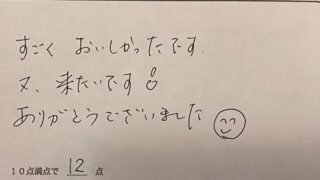 すごく おいしかったです.
又、来たいです
ありがとうございました
10点満点で 12 点